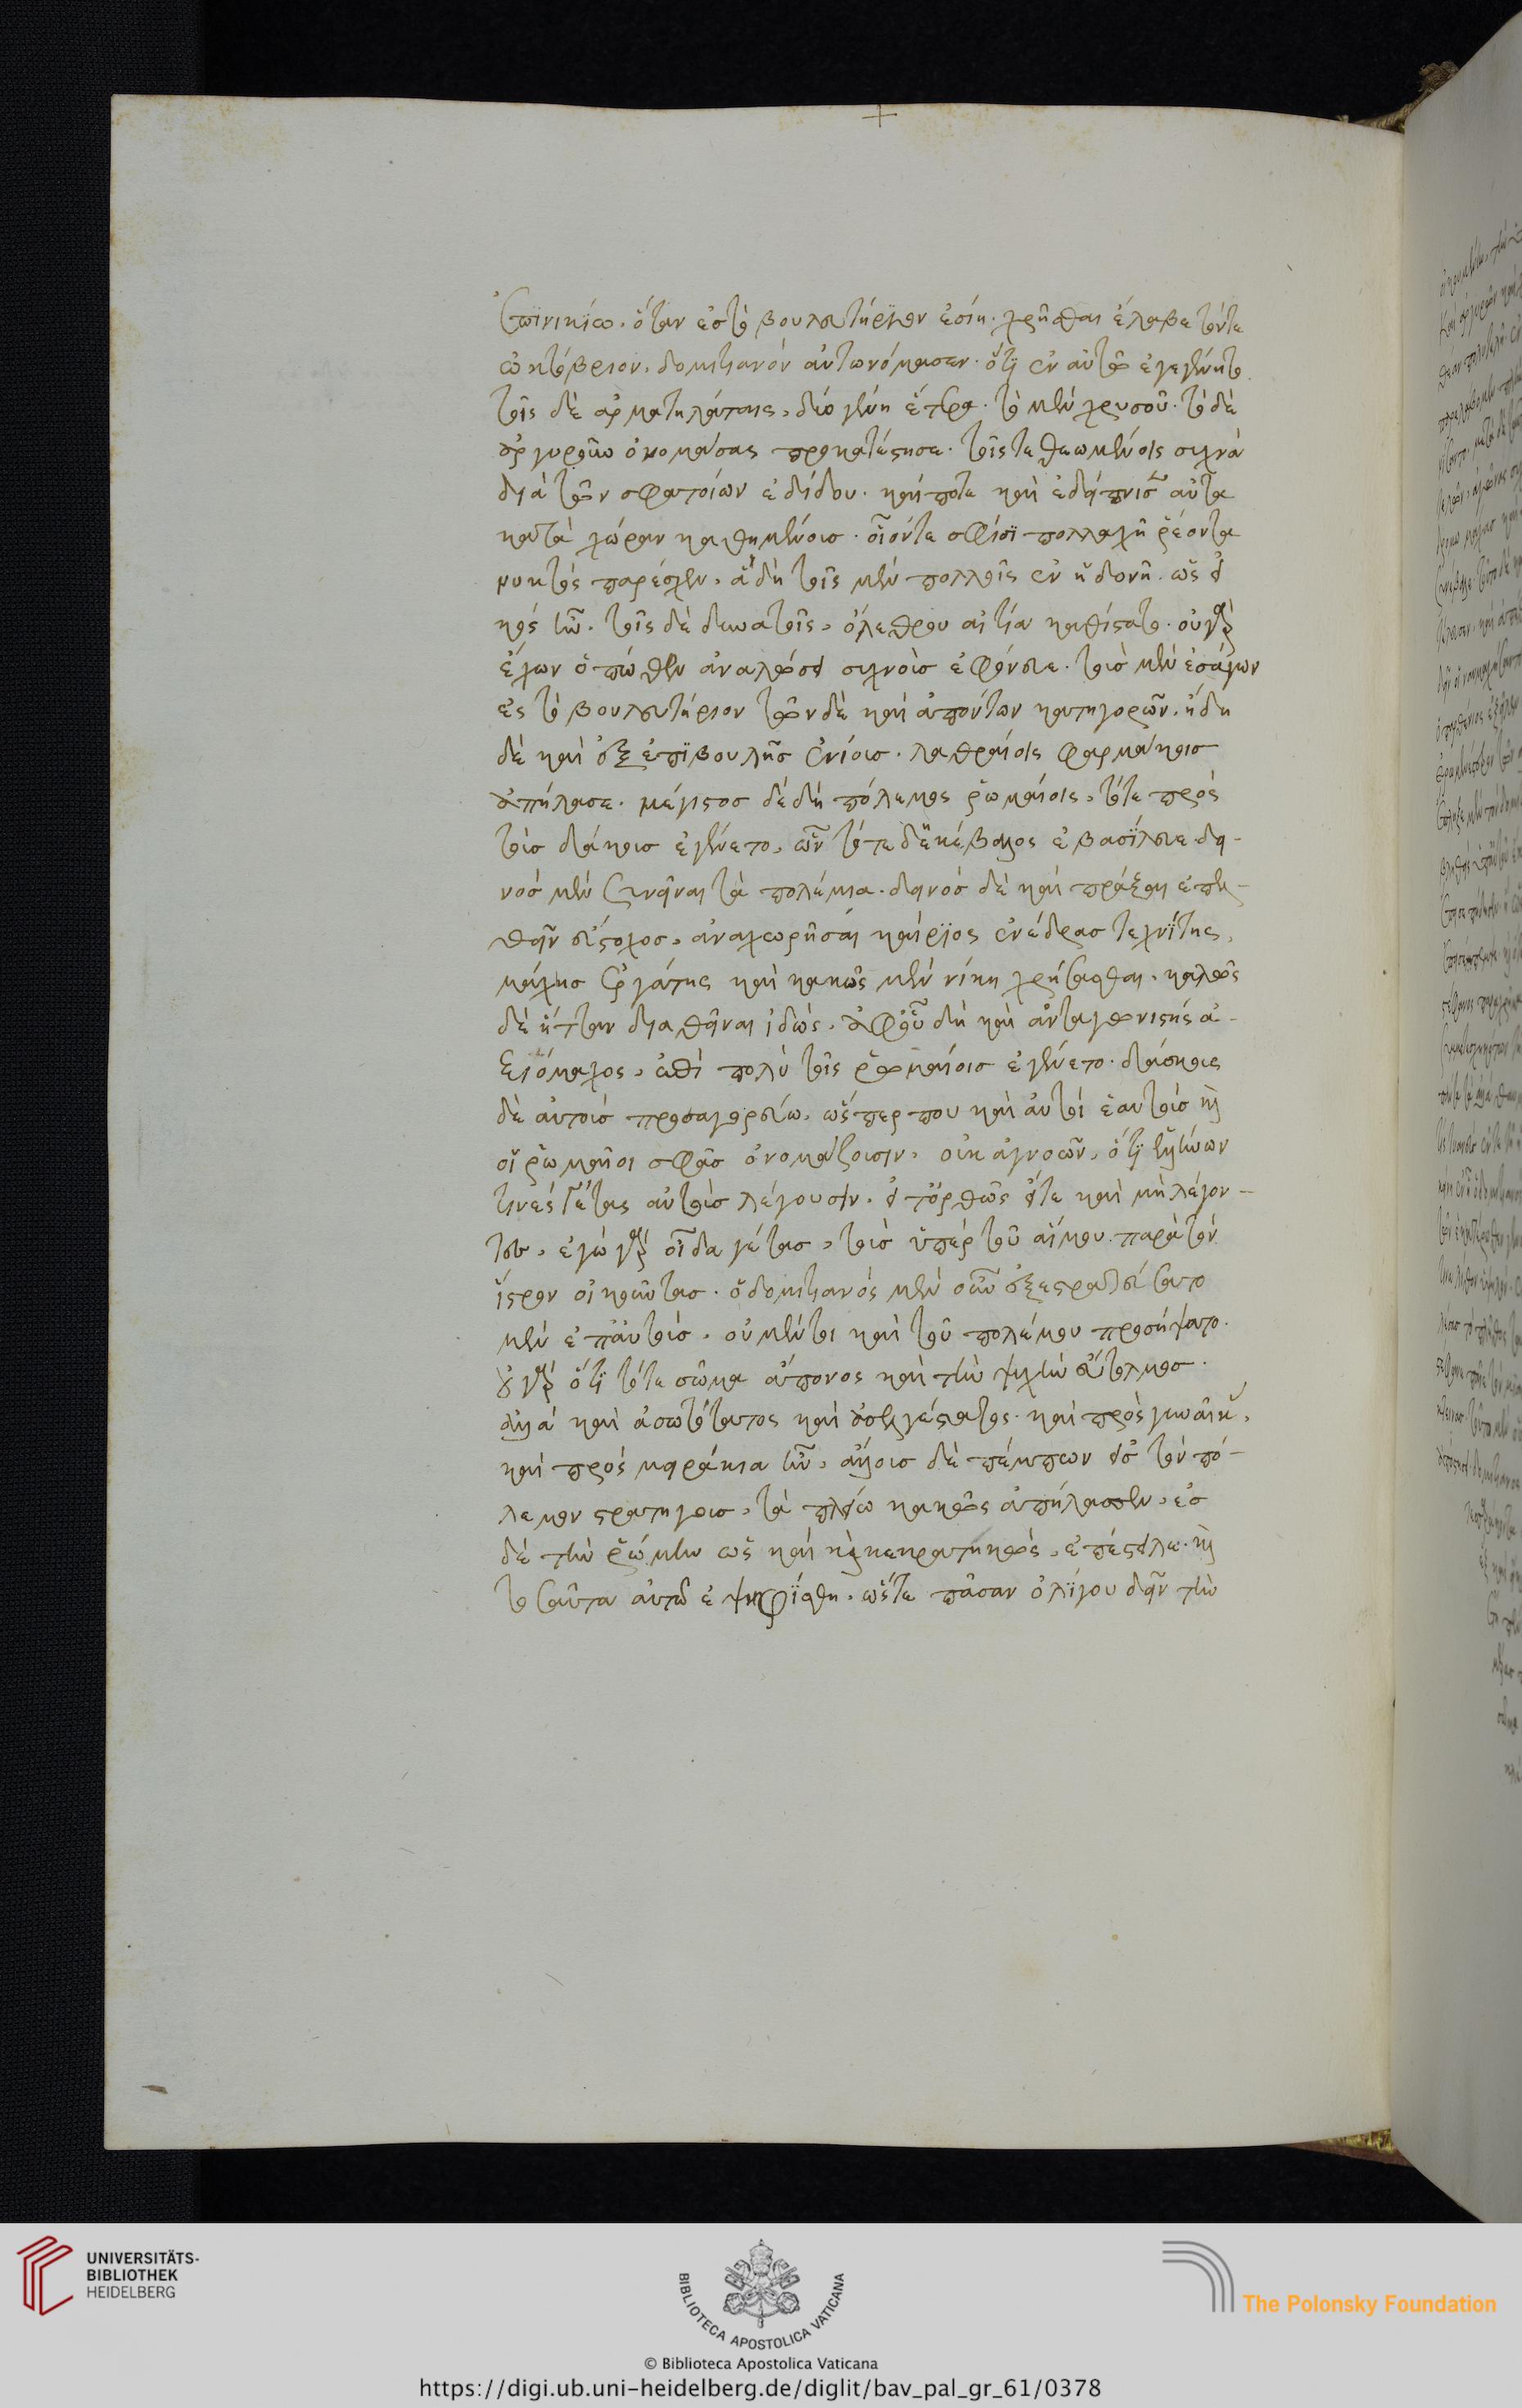 ἐπινικίω. ὅταν ἐς τὸ βουλευτήριον ἐσίη. χρῆσθαι ἔλαβε τόντε
ὠκτόβριον. δομιτιανὸν ἀντωνόμασεν. ὅτι ἐν αὐτῶ ἐγεγένητο
τοῖς δὲ ἁρματηλάταις, δύο γένη ἕτερα. τὸ μὲν χρυσοῦν. τὸ δὲ
ἀργυροῦν ὀνομάσας προκατέστησε. τοῖς τε θεωμένοις συχνὰ
διὰ τῶν σφατρίων ἐδίδου. καί ποτε καὶ ἐδείπνισεν αὐτοὺς
κατὰ χώραν καθημένους. οἶόντε σφίσι πολλαχῆ ῥέοντα
νυκτὸς παρέσχεν, ἃ δὴ τοῖς μὲν πολλοῖς ἐν ἡδονῆ. ὡς εἰ
κὸς ἦν. τοῖς δὲ δυνατοῖς, ὀλέθρου αἰτία καθίστατο. οὐ γὰρ
ἔχων ὁπώθεν ἀναλώσει συχνοὺς ἐφόνευε. τοὺς μὲν ἐσάγων
ἐς τὸ βουλευτήριον τῶν δὲ καὶ ἀπόντων κατηγορῶν. ἤδη
δὲ καὶ ἐξ ἐπιβουλῆς ἐνίους. λαθραίοις φαρμάκοις
ἀπήλασε. μέγιστος δὲ δὴ πόλεμος ῥωμαίοις, τότε πρὸς
τοὺς δάκους ἐγένετο, ὧν τότε δεκέβαλος ἐβασίλευε δει-
νὸς μὲν συνεῖναι τὰ πολέμια. δεινὸς δὲ καὶ πράξαι ἐπελ-
θεῖν εὔστοχος, ἀναχωρῆσαι καίριος ἐνέδρας τεχνίτης,
μάχης ἐργάτης καὶ καλῶς μὲν νίκη χρήσασθαι. καλῶς
δὲ ἧτταν διαθεῖναι εἰδὼς. ἀφοῦ δὴ καὶ ἀνταγωνιστὴς ἀ-
ξιόμαχος, ἐπὶ πολὺ τοῖς ῥωμαίοις ἐγένετο. δάσκους
δὲ αὐτοὺς προσαγορεύω, ὥσπερ που καὶ αὐτοὶ ἑαυτοὺς καὶ
οἱ ῥωμαῖοι σφᾶς ὀνομάζουσιν. οὐκ ἀγνοῶν, ὅτι ἑλλήνων
τινὲς γέτας αὐτοὺς λέγουσιν. εἴτ᾽ ὀρθῶς εἴτε καὶ μὴ λέγον-
τες, ἐγὼ γὰρ οἶδα γέτας, τοὺς ὑπὲρ τοῦ αἵμου παρὰ τὸν
ἴστρον οἰκοῦντας. ὁ δομιτιανὸς μὲν οὖν ἐξεστρατεύσατο
μὲν ἐπ᾽ αὐτοὺς. οὐ μέντοι καὶ τοῦ πολέμου προσήψατο.
οὐ γὰρ ὅτι τότε σῶμα ἄπονος καὶ τὴν ψυχὴν ἄτολμος.
ἀλλὰ καὶ ἀσωτότατος καὶ ἀσελγέστατος. καὶ πρὸς γυναῖκας,
καὶ πρὸς μειράκια ὤν, ἄλλους δὲ πέμπων εἰς τὸν πό-
λεμον στρατηγοὺς, τὰ πλείω κακῶς ἀπήλασσεν, ἐς
δὲ τὴν ῥώμην ὡς καὶ κεκρατηκὼς, ἐπέστειλε. καὶ
τοσαῦτα αὐτῶ ἐψηφίσθη. ὥστε πᾶσαν ὀλίγου δεῖν τὴν
UNIVERSITÄTS-
BIBLIOTHEK
HEIDELBERG
BIBLIOTECA APOSTOLICA VATICANA
The Polonsky Foundation
© Biblioteca Apostolica Vaticana
https://digi.ub.uni-heidelberg.de/diglit/bav_pal_gr_61/0378